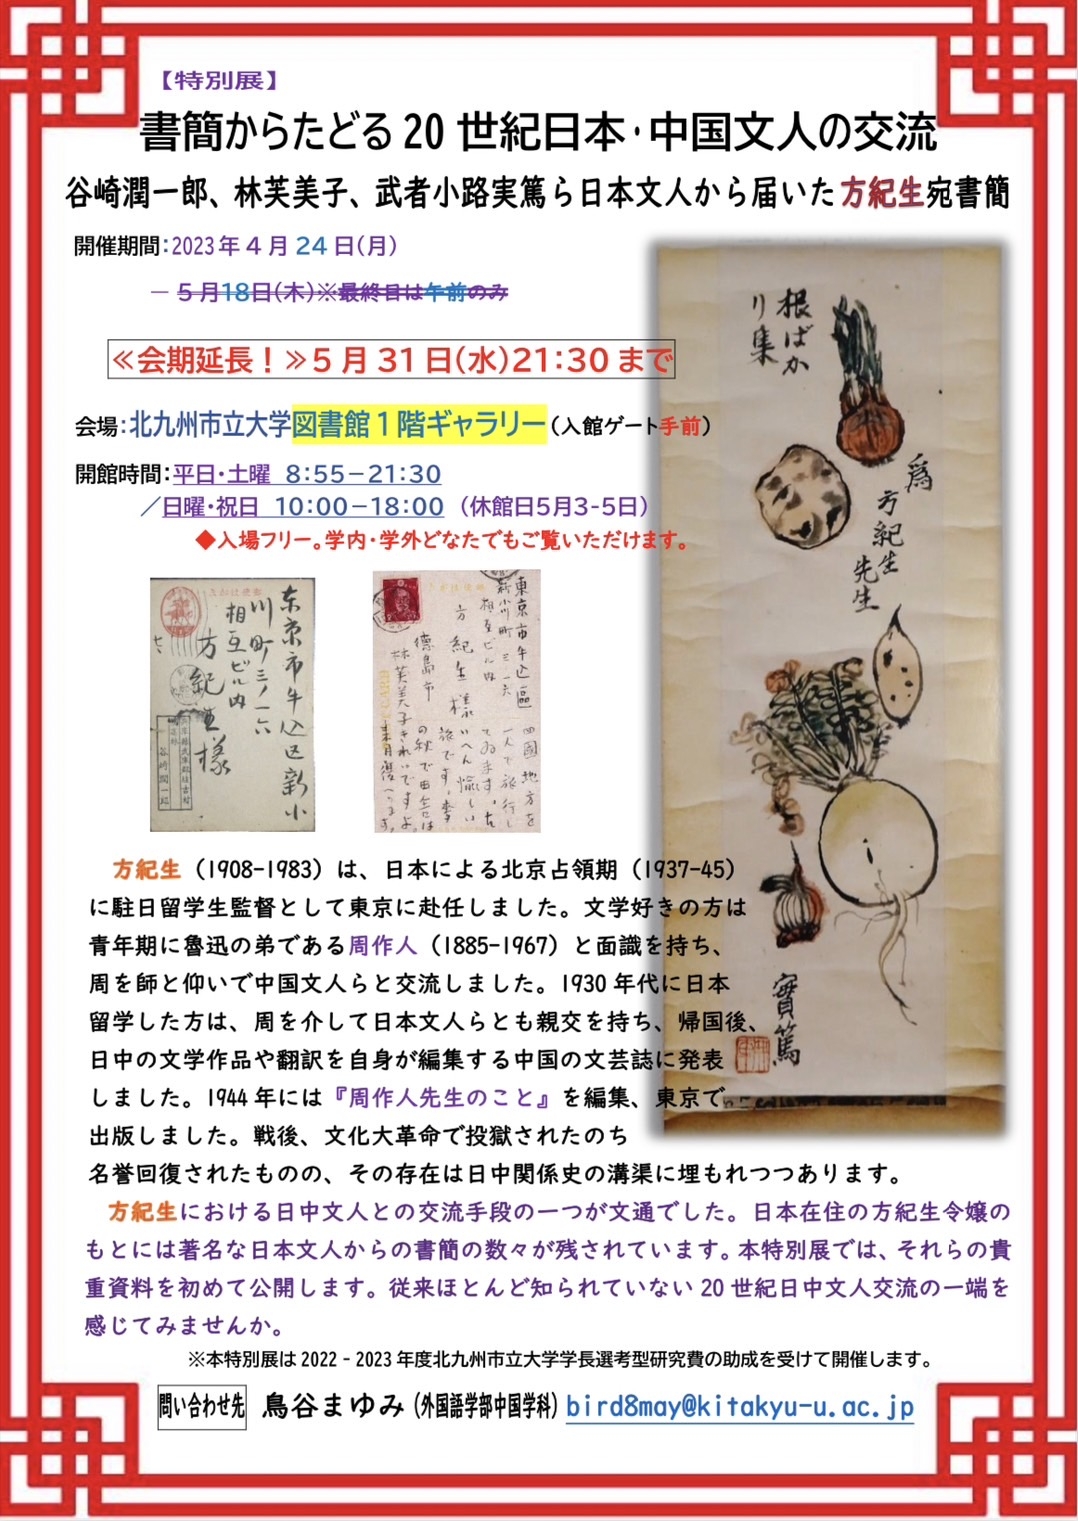 【特別展】
書簡からたどる20世紀日本・中国文人の交流
谷崎潤一郎、林芙美子、武者小路実篤ら日本文人から届いた方紀生宛書簡
開催期間：2023年4月24日（月）
― 5月18日（木）※最終日は午前のみ
≪会期延長！≫5月31日（水）21：30まで
会場：北九州市立大学図書館1階ギャラリー（入館ゲート手前）
開館時間：平日・土曜 8：55－21：30
／日曜・祝日 10：00－18：00（休館日5月3-5日）
◆入場フリー。学内・学外どなたでもご覧いただけます。
根ばか
り集
為
方紀生
先生
實篤
东京市牛込区新小
川町三ノ一六
相互ビル内
方紀生様
谷崎潤一郎
東京市牛込區
新小川町三ノ一六
相互ビル内
方紀生様
徳島市
林芙美子
四國地方を
一人で旅行し
てゐます。た
いへん愉しい
旅です。
方紀生（1908-1983）は、日本による北京占領期（1937-45）
に駐日留学生監督として東京に赴任しました。文学好きの方は
青年期に魯迅の弟である周作人（1885-1967）と面識を持ち、
周を師と仰いで中国文人らと交流しました。1930年代に日本
留学した方は、周を介して日本文人らとも親交を持ち、帰国後、
日中の文学作品や翻訳を自身が編集する中国の文芸誌に発表
しました。1944年には『周作人先生のこと』を編集、東京で
出版しました。戦後、文化大革命で投獄されたのち
名誉回復されたものの、その存在は日中関係史の溝渠に埋もれつつあります。
方紀生における日中文人との交流手段の一つが文通でした。日本在住の方紀生令嬢の
もとには著名な日本文人からの書簡の数々が残されています。本特別展では、それらの貴
重資料を初めて公開します。従来ほとんど知られていない20世紀日中文人交流の一端を
感じてみませんか。
※本特別展は2022‐2023年度北九州市立大学学長選考型研究費の助成を受けて開催します。
問い合わせ先 鳥谷まゆみ（外国語学部中国学科）bird8may@kitakyu-u.ac.jp